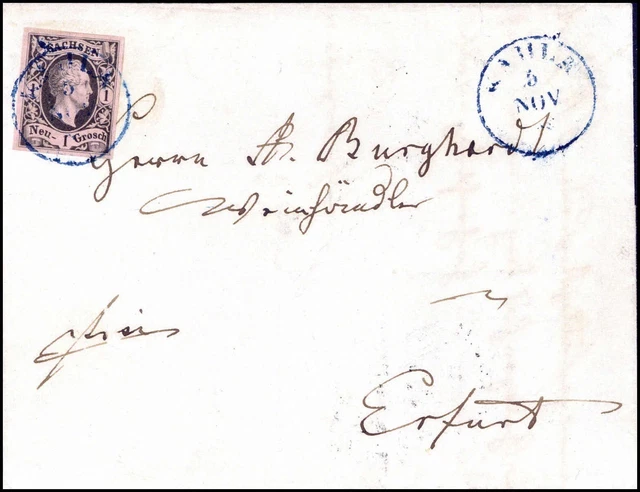 SACHSEN
1
Neu- 1 Grosch
KAHLA
5
NOV
Herrn A. Burghardt
Weinhändler
frei
Erfurt